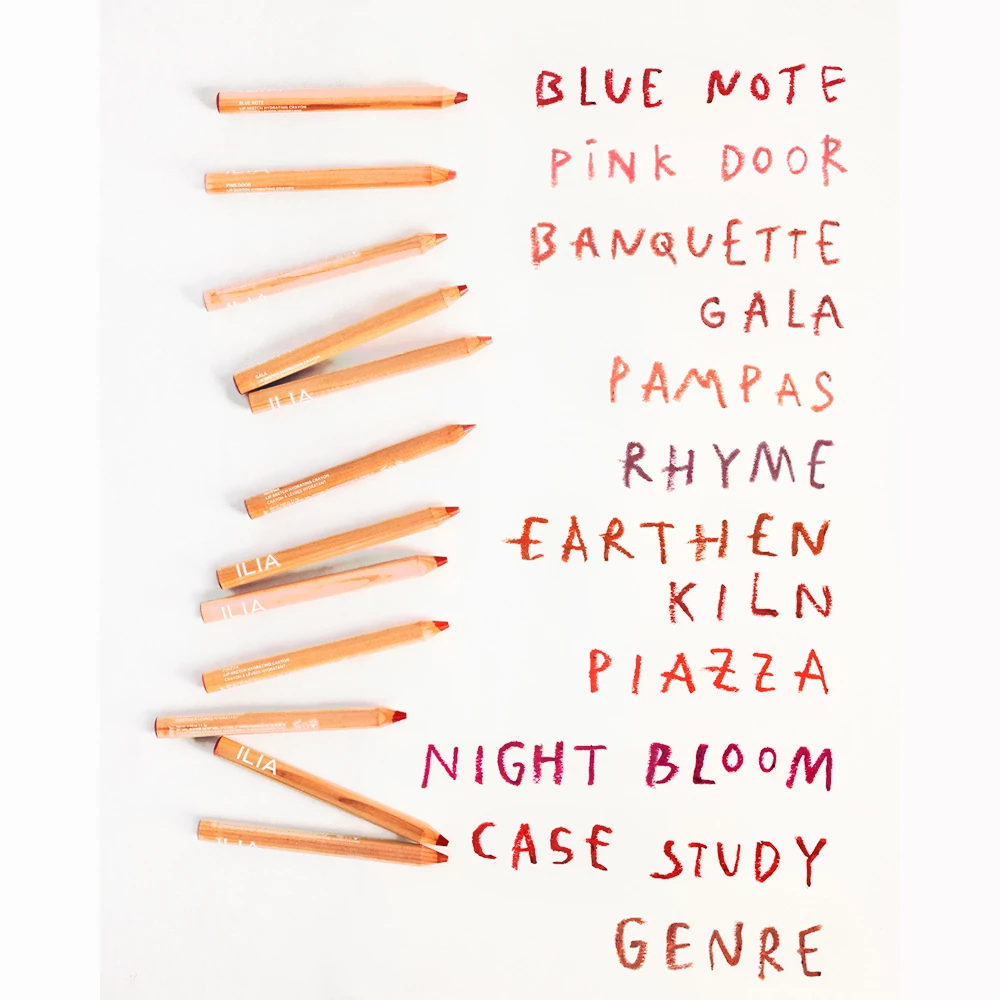 BLUE NOTE
BLUE NOTE
LIP SKETCH HYDRATING CRAYON
PINK DOOR
PINK DOOR
LIP SKETCH HYDRATING CRAYON
BANQUETTE
ILIA
GALA
GALA
PAMPAS
ILIA
RHYME
LIP SKETCH HYDRATING CRAYON
CRAYON À LÈVRES HYDRATANT
EARTHEN
ILIA
KILN
ILIA
PIAZZA
PIAZZA
LIP SKETCH HYDRATING CRAYON
CRAYON À LÈVRES HYDRATANT
NIGHT BLOOM
ILIA
CASE STUDY
ILIA
GENRE